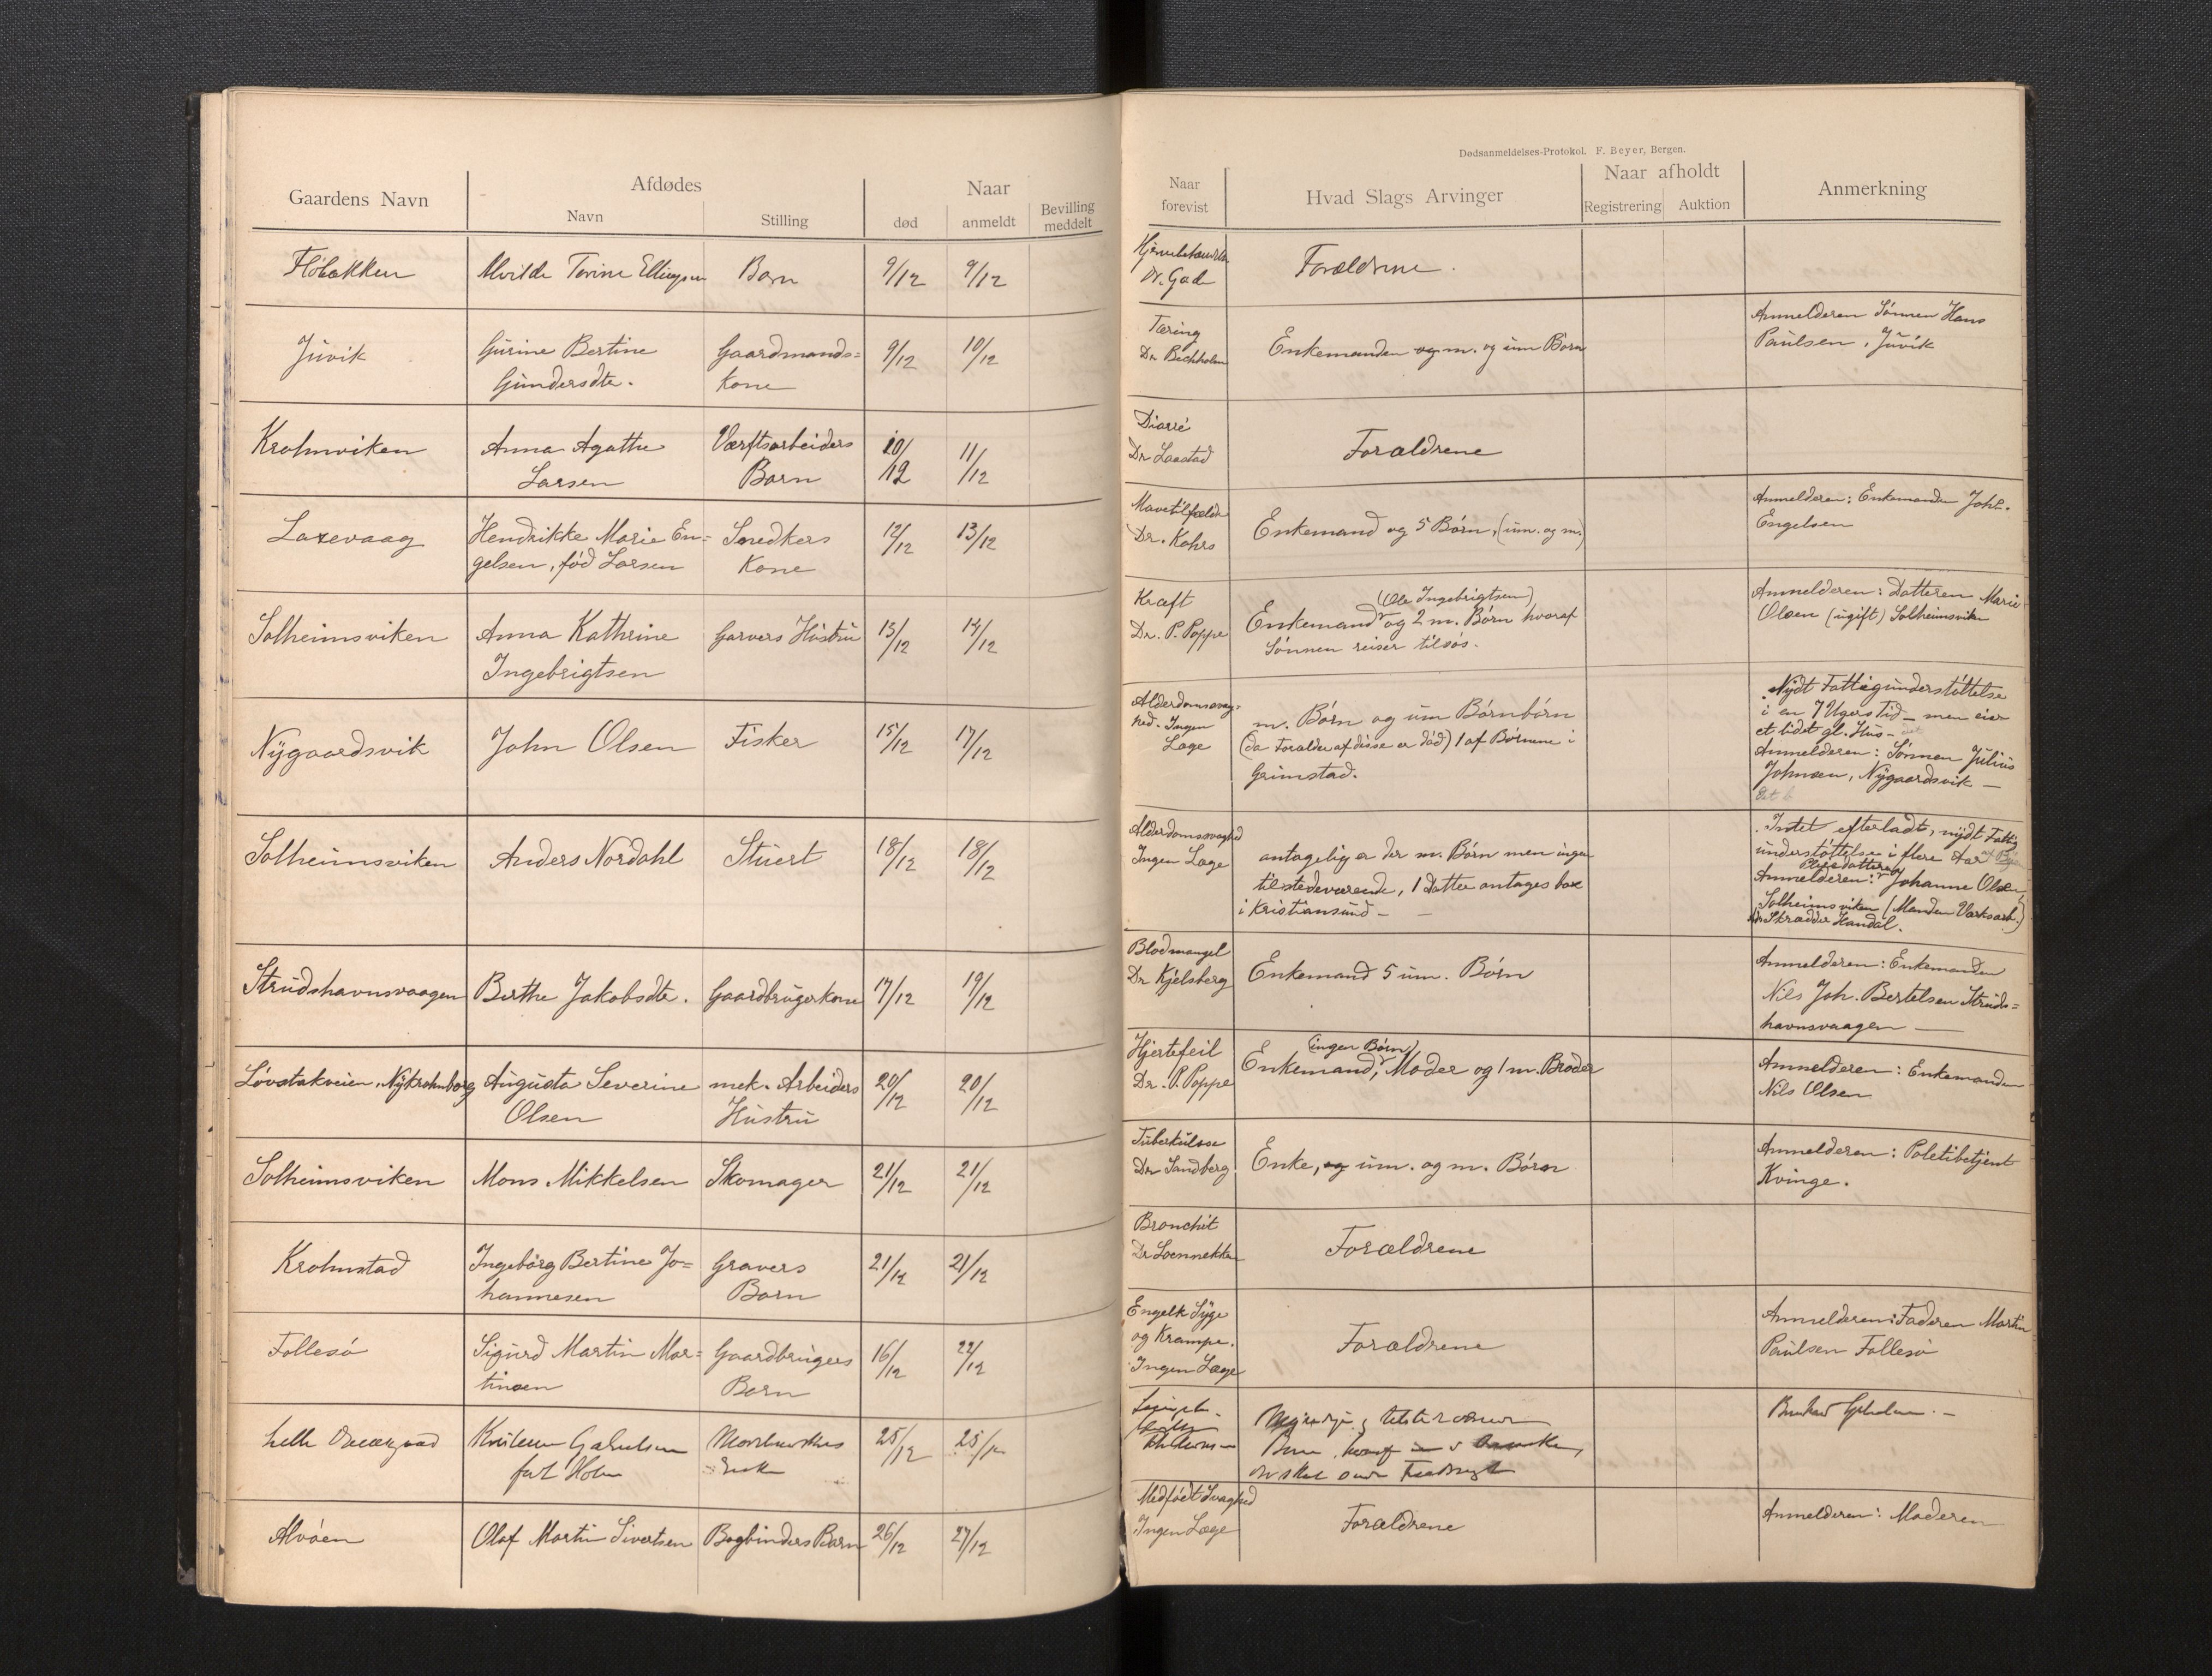 Dødsanmeldelses-Protokol. F. Beyer, Bergen.
Gaardens Navn
Afdødes
Navn
Stilling
Naar
død
anmeldt
Bevilling
meddelt
Naar
forevist
Hvad Slags Arvinger
Naar afholdt
Registrering
Auktion
Anmerkning
Flöbakken
Alvilde Torine Ellingsen
Barn
9/12
9/12
Dr. Gade
Forældrene.
Juvik
Gurine Bertine
Gundersdtr.
Gaardmands-
kone
9/12
10/12
Tæring
Dr.
Enkemanden og m. og um Børn
Anmelderen Sønnen Hans
Paulsen, Juvik
Krohnviken
Anna Agathe
Larsen
Værftsarbeiders
Barn
10/12
11/12
Diarré
Dr Laastad
Forældrene
Laxevaag
Hendrikke Marie En-
gelsen, fød Larsen
Snedkers
Kone
12/12
13/12
Mavetilfælde
Dr. Kahrs
Enkemand og 5 Børn, (um. og m.)
Anmelderen: Enkemanden Johs.
Engelsen
Solheimsviken
Anna Kathrine
Ingebrigtsen
Garvers Hustru
13/12
14/12
Kræft
Dr. P. Poppe
(Ole Ingebrigtsen)
Enkemand og 2 m. Børn hvoraf
Sønnen reiser tilsøs.
Anmelderen: Datteren Marie
Olsen (ugift) Solheimsviken
Nygaardsvik
John Olsen
Fisker
15/12
17/12
Alderdomssvag-
hed. Ingen
Læge
m. Børn og um Børnbørn
(da Forældre af disse er død) 1 af Børnene i
Grimstad.
Nydt Fattigunderstøttelse
i en 7 Ugers Tid – men eier
et lidet gl. Hus –
Anmelderen: Sønnen Julius
Johnsen, Nygaardsvik –
Solheimsviken
Anders Nordahl
Stuert
18/12
18/12
Alderdomssvaghed
Ingen Læge
antagelig er der m. Børn men ingen
tilstedeværende, 1 Datter antages boe
i Kristiansund –
Intet efterladt, nydt Fattig
understøttelse i flere Aar
Pleiedatteren
Anmelderen: Johanne Olsen,
Solheimsviken (Manden Værksarb.)
Skrædder Handal.
Strudshavnsvaagen
Berthe Jakobsdtr.
Gaardbrugerkone
17/12
19/12
Blodmangel
Dr Kjelsberg
Enkemand 5 um. Børn
Anmelderen: Enkemanden
Nils Joh. Bertelsen Struds-
havnsvaagen
Løvstakveien, Ny Krohnborg
Augusta Severine
Olsen
mek. Arbeiders
Hustru
20/12
20/12
Hjertefeil
Dr. P. Poppe
(ingen Børn)
Enkemand, Moder og 1 m. Broder
Anmelderen: Enkemanden
Nils Olsen
Solheimsviken
Mons Mikkelsen
Skomager
21/12
21/12
Tuberkulose
Dr Sandberg
Enke, og um. og m. Børn
Anmelderen: Politibetjent
Kvinge.
Krohnstad
Ingeborg Bertine Jo-
hannesen
Gravers
Barn
21/12
21/12
Bronchit
Dr Loennekken
Forældrene
Follesø
Sigurd Martin Mar-
tinsen
Gaardbrugers
Barn
16/12
22/12
Engelsk Syge
og Krampe.
Ingen Læge
Forældrene
Anmelderen: Faderen Martin
Paulsen Follesø
født Holm
Enke
25/12
Alvøen
Olaf Martin Sivertsen
Bogbinders Barn
26/12
27/12
Medfødt Svaghed
Ingen Læge
Forældrene
Anmelderen: Moderen